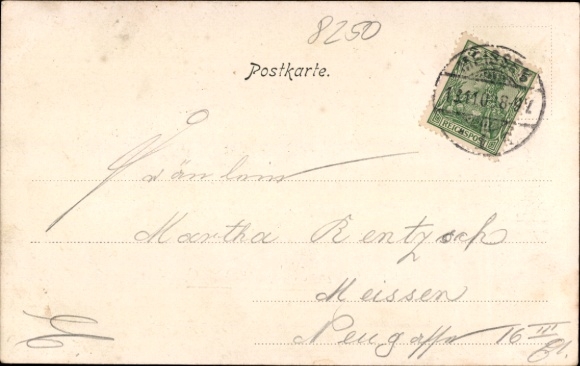 8250
Postkarte.
MEISSEN
REICHSPOST
Fräulein
Martha Rentzsch
Meissen
Neugasse 16 III